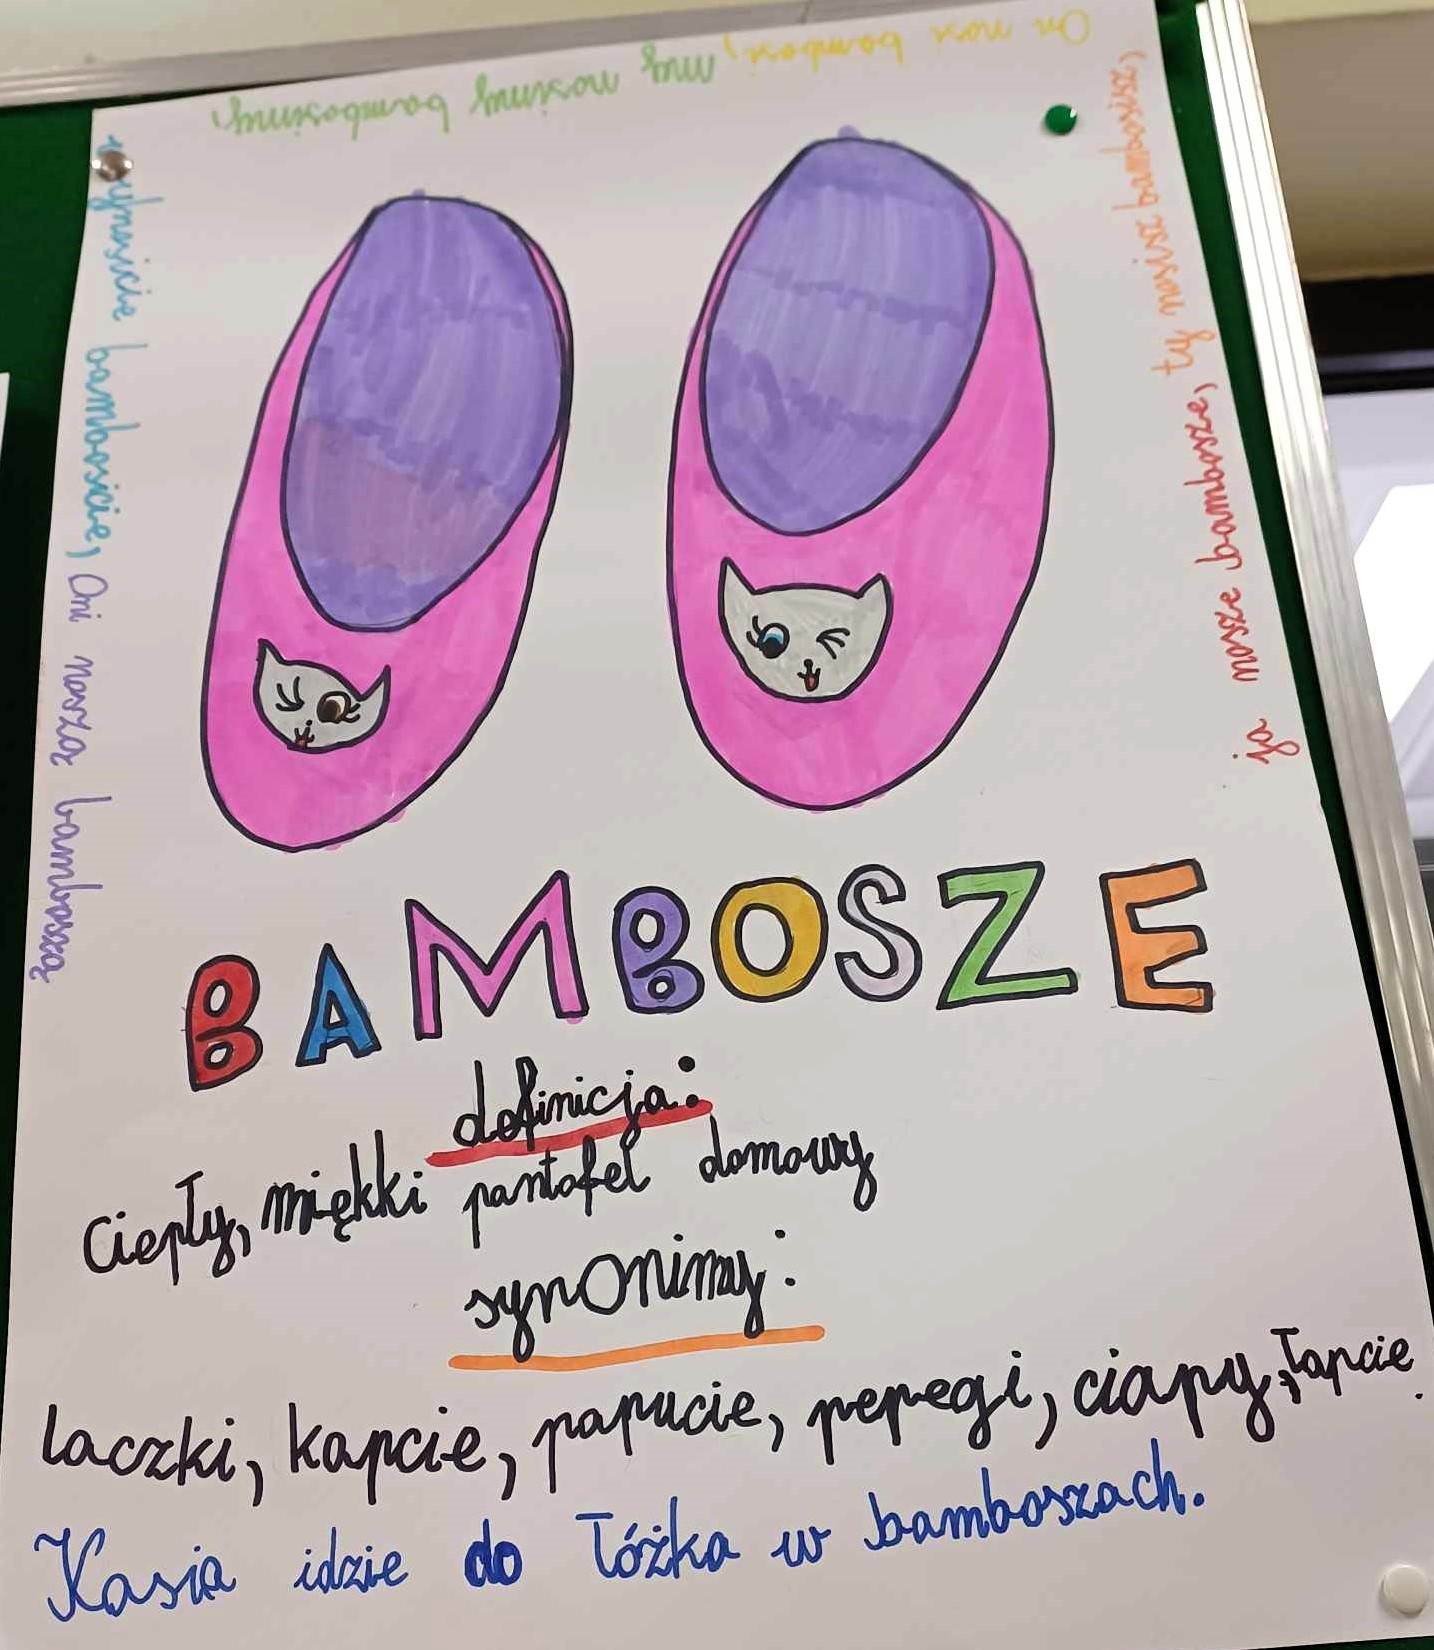 ja nosze bambosze, ty nosisz bambosisz,
On nosi bambosi, my nosimy bambosimy,
wy nosicie bambosicie, Oni noszą bamboszą
BAMBOSZE
definicja:
ciepły, miękki pantofel domowy
synonimy:
laczki, kapcie, papucie, pepegi, ciapy, łapcie.
Kasia idzie do łóżka w bamboszach.